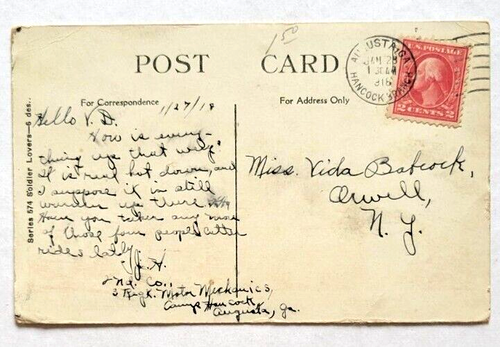 1.50
POST CARD
For Correspondence
1/27/18
For Address Only
AUGUSTA, GA.
JAN 28
HANCOCK
U.S. POSTAGE
2 CENTS 2
Series 574 Soldier Lovers—6 des.
Hello V.B.
How is every-
thing up that way.
It is real hot down, and
I suppose it is still
winter up there
Have you taken any more
of those four people cutter
rides lately
J.H.
2nd. Co.,
3 Regt. Motor Mechanics,
Camp Hancock,
Augusta, Ga.
Miss. Vida Babcock,
Orwell,
N. Y.